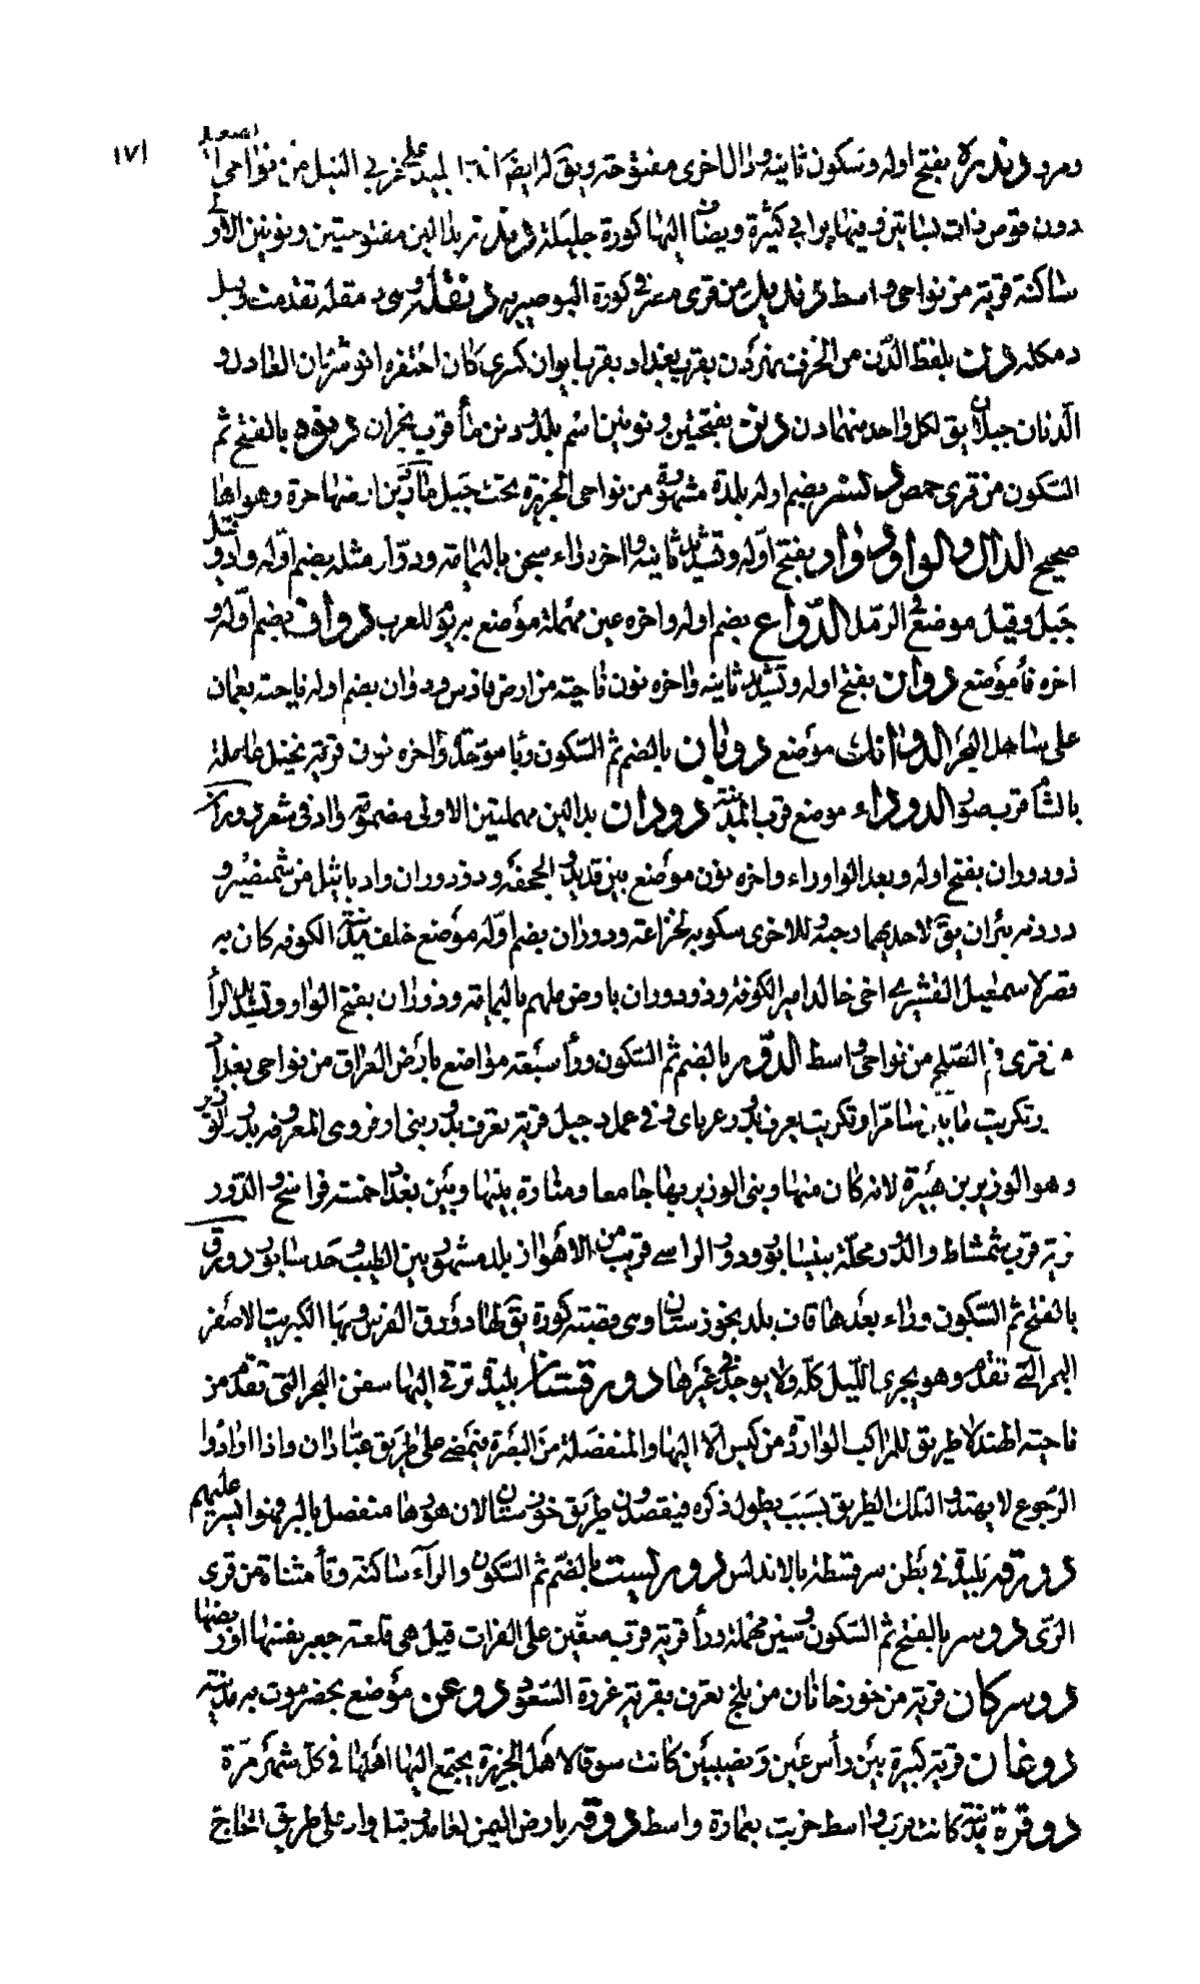 ١٧١
الصعيد
ومرو دندرة بفتح اوله وسكون ثانيه ودال اخرى مفتوحة ويق لها ايضا اندرا بليد على غربي النيل من نواحى
دون قوص ذات بساتين وفيها برابى كثيرة ويضاف اليها كورة جليلة دندنه بدالين مفتوحتين ونونين الاولى
ساكنة قرية من نواحى واسط دنديل من قرى مصر فى كورة البوصيريه دنقلة وهى دمقله تقدمت وقيل
دمكله دن بلفظ الدن من الخزف نهر دن بقرب بغداد بقرب ايوان كسرى كان احتفره انوشروان العادل و
الدنان جبلان يق لكل واحد منهما دن دنن بفتحتين ونونين اسم بلد ودنن ماء قرب نجران دنوه بالفتح ثم
السكون من قرى حمص دنيسر بضم اوله بلدة مشهورة من نواحى الجزيرة تحت جبل ماردين ارضها حرة وهواها
صحيح الدال والواو دوار بفتح اوله وتشديد ثانيه واخره راء سجن باليمامة ودوار مثله بضم اوله واد وقيل
جبل وقيل موضع فى الرمل الدواع بضم اوله واخره عين مهملة موضع به يوم للعرب دواف بضم اوله و
اخره فاء موضع دوان بفتح اوله وتشديد ثانيه واخره نون ناحية من ارض فارس ودوان بضم اوله ناحية بعمان
على ساحل البحر الدوانك موضع دوبان بالضم ثم السكون وبا موحدة واخره نون قرية بجبل عاملة
بالشام قرب صور الدوداء موضع قرب المدينة دودان بدالين مهملتين الاولى مضمومة واد فى شعر دوران
ذودوران بفتح اوله وبعد الواو راء واخره نون موضع بين قديد والجحفه وذودوران واد ياتى من شمنصير و
دردنه بئران يق لاحديهما رحبة وللاخرى سكوبه لخزاعة ودوران بضم اوله موضع خلف جسر الكوفه كان به
قصر لاسمعيل القشيرى اخى خالد امير الكوفة وذودوران بارض ملهم باليمامة ودوران بفتح الواو وتشديد الراء
من قرى فم الصلح من نواحى واسط الدور بالضم ثم السكون وراء سبعة مواضع بارض العراق من نواحى بغداد
وتكريت ما بين سامرا وتكريت يعرف بدور عربايى وفى عمل دجيل قرية تعرف بدور بنى اوقر وهى المعروفة بدور الوزير
وهو الوزير بن هبيرة لانه كان منها وبنى الوزير بها جامعا ومنارة بينها وبين بغداد خمسة فراسخ والدور
قرية قرب شمشاط والدور محلة بنيسابور ودور الراسبى قريب من الاهواز بلد مشهور بين الطيب وجندسابور دورق
بالفتح ثم السكون وراء بعدها قاف بلد بخوزستان وهى قصبة كورة يق لها دورق الفرس وبها الكبريت الاصفر
البحر التى تقدم وهو يجرى الليل كله ولا يوجد فى غيرها دورقستان بليدة ترقى اليها سفن البحر التى تقدم من
ناحية الهند لا طريق للمراكب الواردة من كيس الا اليها والمنفصلة من البصرة فيمضى على طريق عبادان واذا ارادوا
الرجوع لا يهتدون لتلك الطريق بسبب يطول ذكره فيقصدون طريق خوزستان لان هورها متصل بالبر فهو ايسر عليهم
دورقه بليدة فى بطن سرقسطة بالاندلس دوريست بالضم ثم السكون والراء ساكنة وتاء مثناة من قرى
الرى دوسر بالفتح ثم السكون وسين مهملة وراء قرية قرب صفين على الفرات قيل هى قلعة جعبر نفسها او ربضها
دوسركان قرية من خوزخانان من بلخ تعرف بقرية غزوة السغد دوعن موضع بحضرموت به مدينة
دوغان قرية كبيرة بين راس عين ونصيبين كانت سوقا لاهل الجزيرة يجتمع اليها اهلها فى كل شهر مرة
دوقرة مدينة كانت قرب واسط خربت بعمارة واسط دوقه بارض اليمن لغامد وقيل واد على طريق الحاج